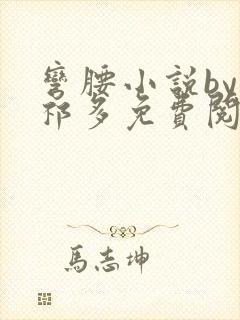 彎腰小說by
祁多免費閱
馬志坤